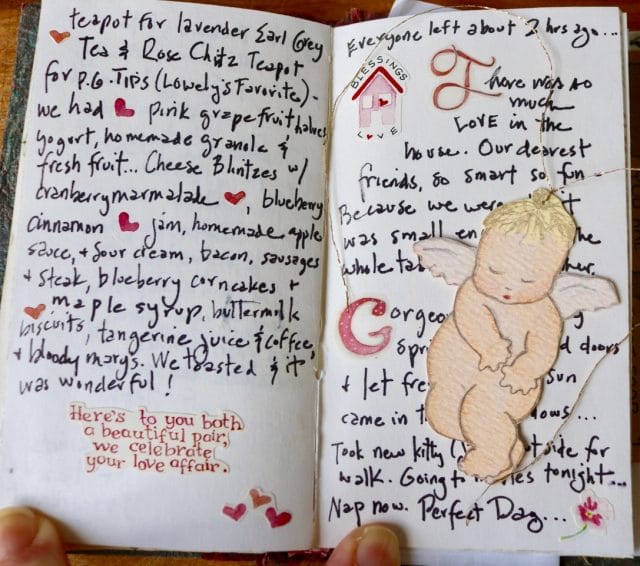 teapot for lavender Earl Grey
Tea & Rose Chitz Teapot
for P.G. Tips (Lowely's Favorite) -
we had pink grapefruit halves,
yogurt, homemade granola &
fresh fruit... Cheese Blintzes w/
cranberry marmalade , blueberry
cinnamon jam, homemade apple
sauce, + sour cream, bacon, sausages
+ steak, blueberry corncakes +
maple syrup, buttermilk
biscuits, tangerine juice & coffee,
+ bloody marys. We toasted & it
was wonderful!
Here's to you both
a beautiful pair,
we celebrate
your love affair.
Everyone left about 2 hrs ago...
BLESSINGS
LOVE
There was so
much
LOVE in the
house. Our dearest
friends, so smart so fun -
Because we were
was small
whole
Gorgeous
doors
+ let sun
came in
Took new kitty for
walk. Going to tonight...
Nap now. Perfect Day...